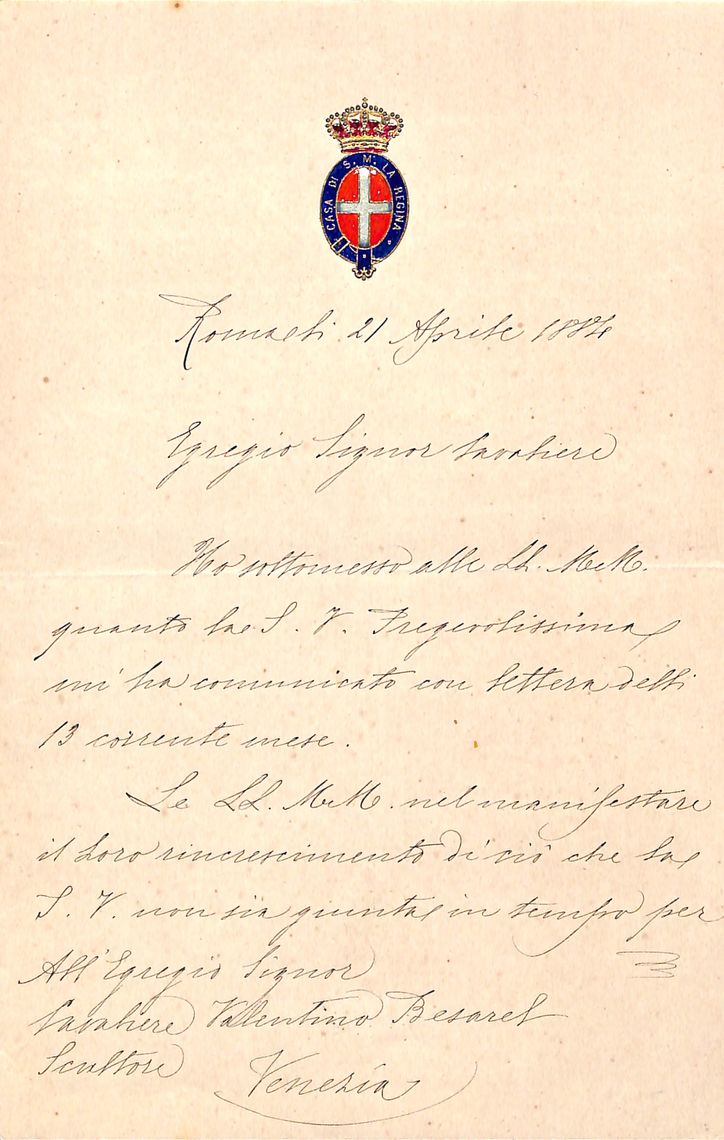 CASA DI S. M. LA REGINA
Roma li 21 Aprile 1884
Egregio Signor Cavaliere
Ho sottomesso alle LL. M.M.
quanto la S. V. Pregevolissima
mi ha comunicato con lettera delli
13 corrente mese.
Le LL. M.M. nel manifestare
il Loro rincrescimento di ciò che la
S. V. non sia giunta in tempo per
All'Egregio Signor
Cavaliere Valentino Besarel
Scultore
Venezia